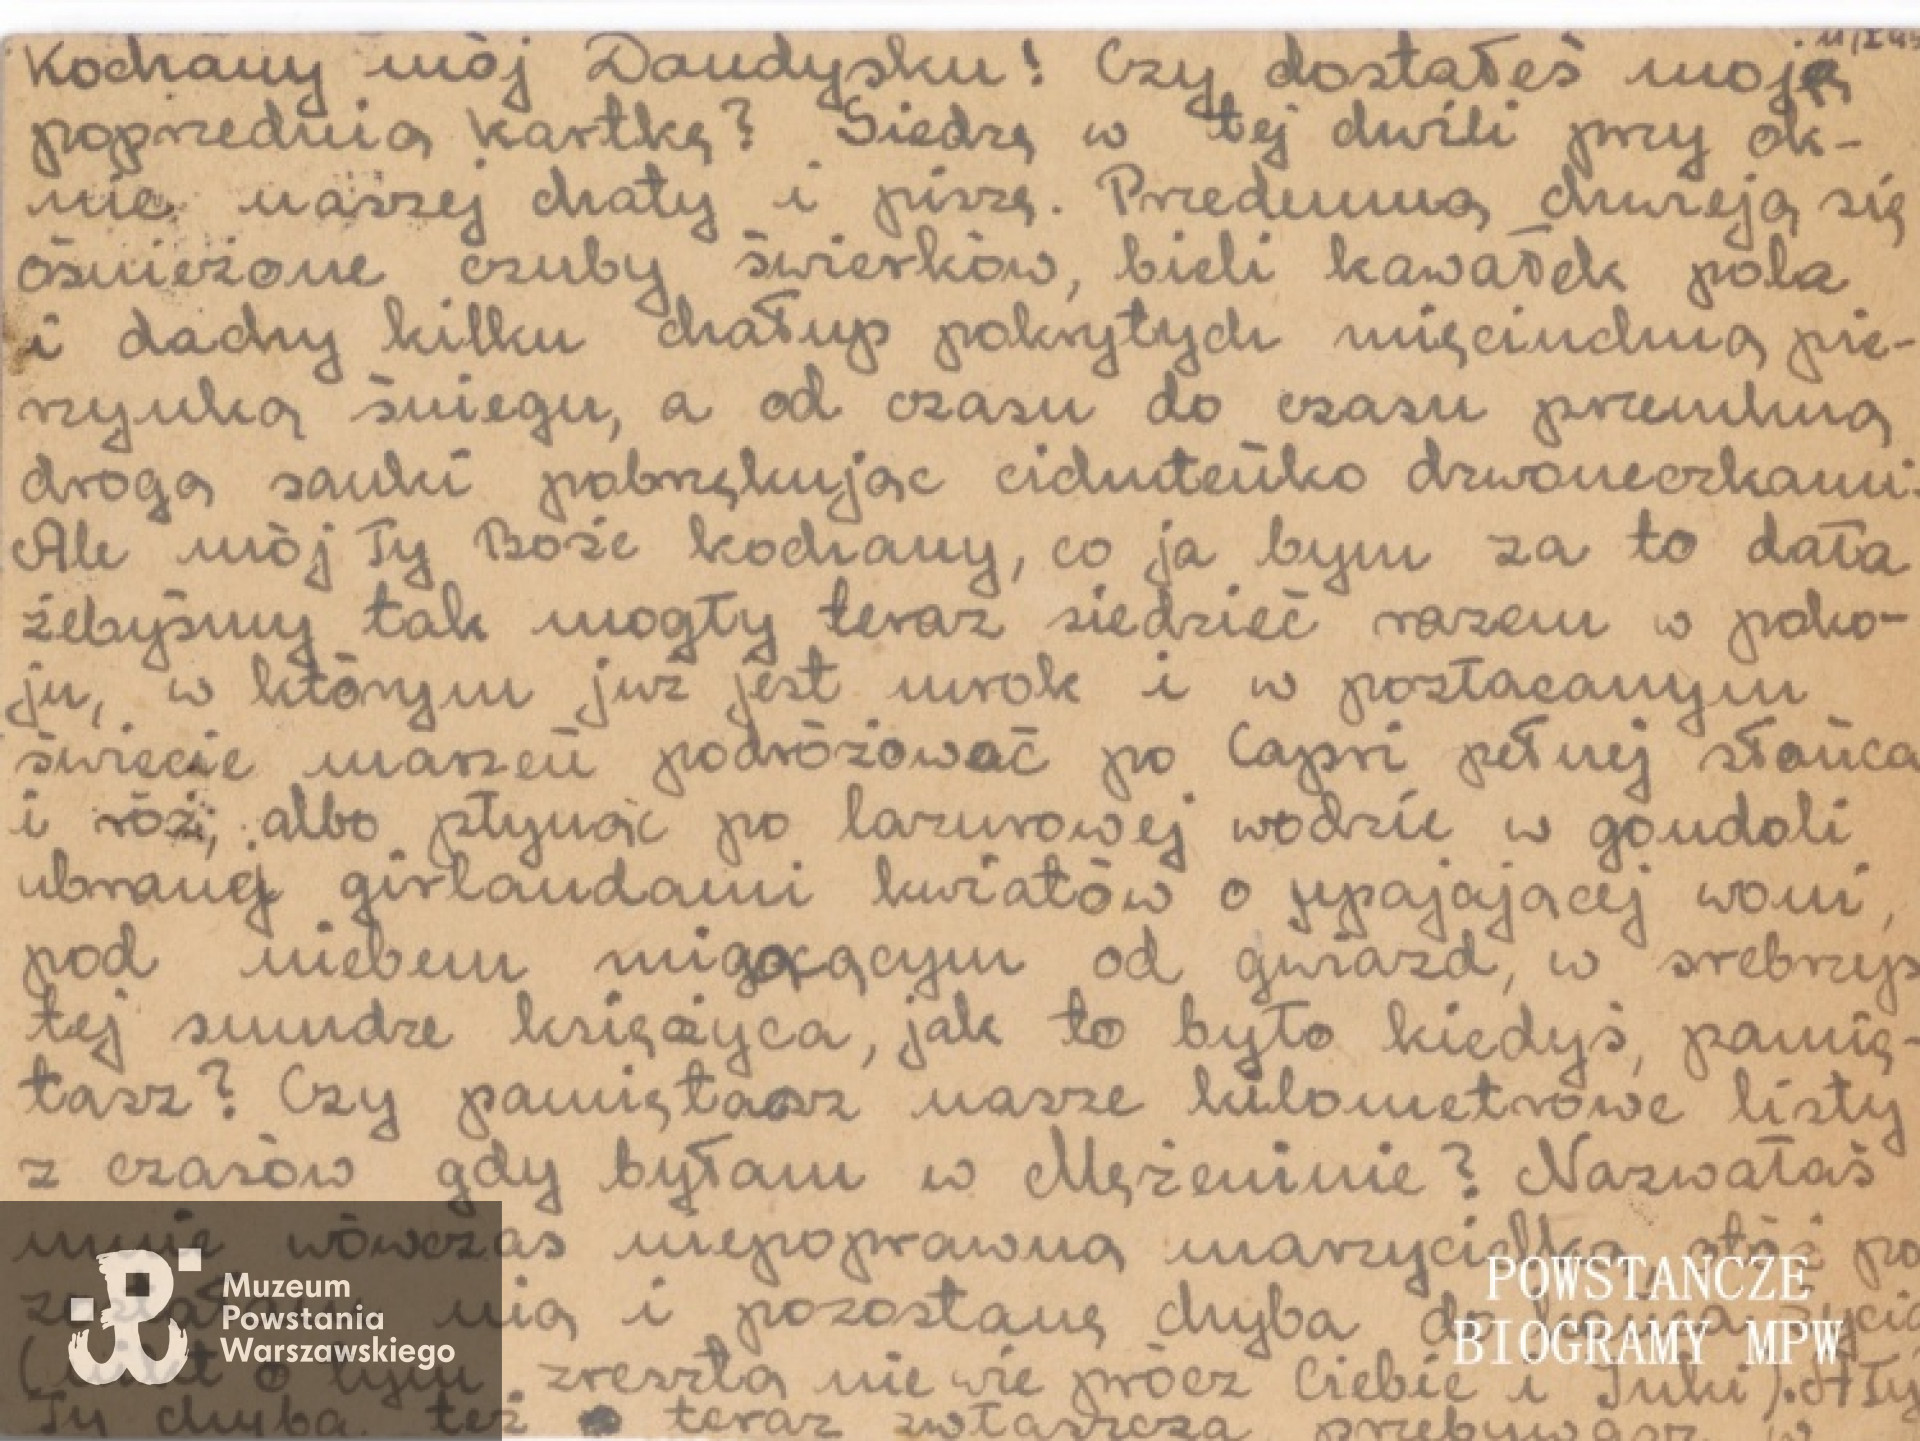 11/I 45
Kochany mój Dandysku! Czy dostałeś moją
poprzednią kartkę? Siedzę w tej chwili przy ok-
nie naszej chaty i piszę. Przedemną chwieją się
ośnieżone czuby świerków, bieli kawałek pola
i dachy kilku chałup pokrytych mięciuchną pie-
rzynką śniegu, a od czasu do czasu przemkną
drogą sanki pobrzękując cichuteńko dzwoneczkami.
Ale mój Ty Boże kochany, co ja bym za to dała
żebyśmy tak mogły teraz siedzieć razem w poko-
ju, w którym już jest mrok i w pozłacanym
świecie marzeń podróżować po Capri pełnej słońca
i róż, albo płynąć po lazurowej wodzie w gondoli
ubranej girlandami kwiatów o upajającej woni,
pod niebem migocącym od gwiazd, w srebrzys
tej smudze księżyca, jak to było kiedyś, pamię-
tasz? Czy pamiętasz nasze kilometrowe listy
z czasów gdy byłam w Mężeninie? Nazwałaś
mnie wówczas niepoprawną marzycielką, otóż po
zostałam nią i pozostanę chyba do końca życia
(nikt o tym zresztą nie wie prócz Ciebie i Inki). A Ty
Ty chyba też teraz zwłaszcza przebywasz w
Muzeum
Powstania
Warszawskiego
POWSTAŃCZE
BIOGRAMY MPW